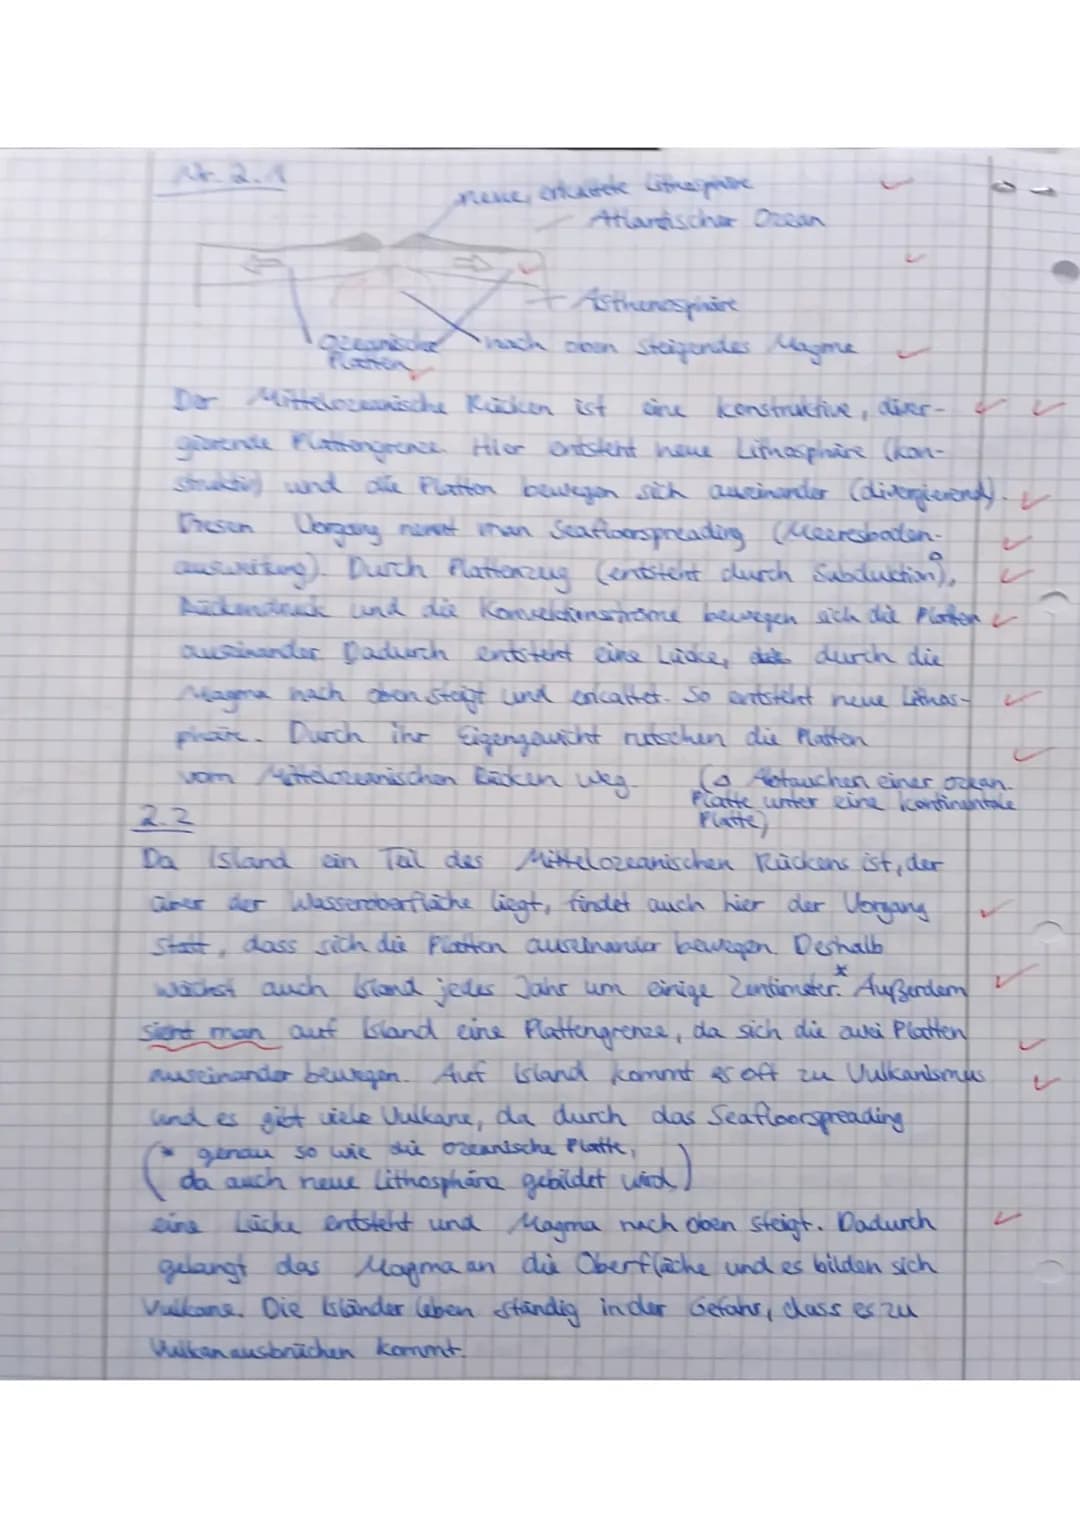 Nr. 2.1
neue, erkaltete Lithosphäre
Atlantischer Ozean
Asthenosphäre
ozeanische nach oben steigendes Magma
Platten
Der Mittelozeanische Rücken ist eine konstruktive, diver-
gierende Plattengrenze. Hier entsteht neue Lithosphäre (kon-
struktiv) und die Platten bewegen sich auseinander (divergierend).
Diesen Vorgang nennt man Seafloorspreading (Meeresboden-
ausweitung). Durch Plattenzug (entsteht durch Subduktion),
Rückendruck und die Konvektionsströme bewegen sich die Platten
auseinander. Dadurch entsteht eine Lücke, durch die
Magma nach oben steigt und erkaltet. So entsteht neue Lithos-
phäre. Durch ihr Eigengewicht rutschen die Platten
vom Mittelozeanischen Rücken weg.
(Abtauchen einer ozean.
Platte unter eine kontinentale
Platte)
2.2
Da Island ein Teil des Mittelozeanischen Rückens ist, der
über der Wasseroberfläche liegt, findet auch hier der Vorgang
statt, dass sich die Platten auseinander bewegen. Deshalb
wächst auch Island jedes Jahr um einige Zentimeter.* Außerdem
sieht man auf Island eine Plattengrenze, da sich die zwei Platten
auseinander bewegen. Auf Island kommt es oft zu Vulkanismus
und es gibt viele Vulkane, da durch das Seafloorspreading
(* genau so wie die ozeanische Platte,
da auch neue Lithosphäre gebildet wird)
eine Lücke entsteht und Magma nach oben steigt. Dadurch
gelangt das Magma an die Oberfläche und es bilden sich
Vulkane. Die Isländer leben ständig in der Gefahr, dass es zu
Vulkanausbrüchen kommt.